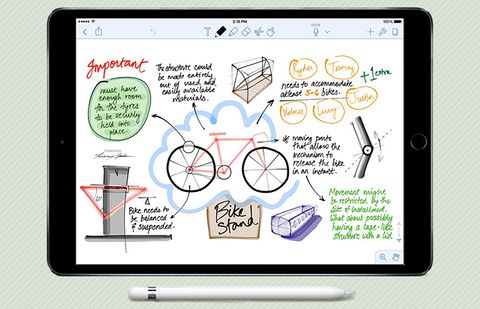 2:18 PM
Important
must have
enough room
for the tyres
to be securely
held into
place.
The structure could
be made entirely
out of used and
easily available
materials.
Ryder
Tommy
+1 extra
needs to accommodate
atleast 5-6 bikes.
Holmes
Lucy
Justin
* moving parts
that allow the
mechanism to
release the bike
in an instant.
Created by
Bike needs to
be balanced
if suspended.
Bike
Stand
Movement might
be restricted by the
of installment.
What about possibly
having a cage-like
structure with a lid